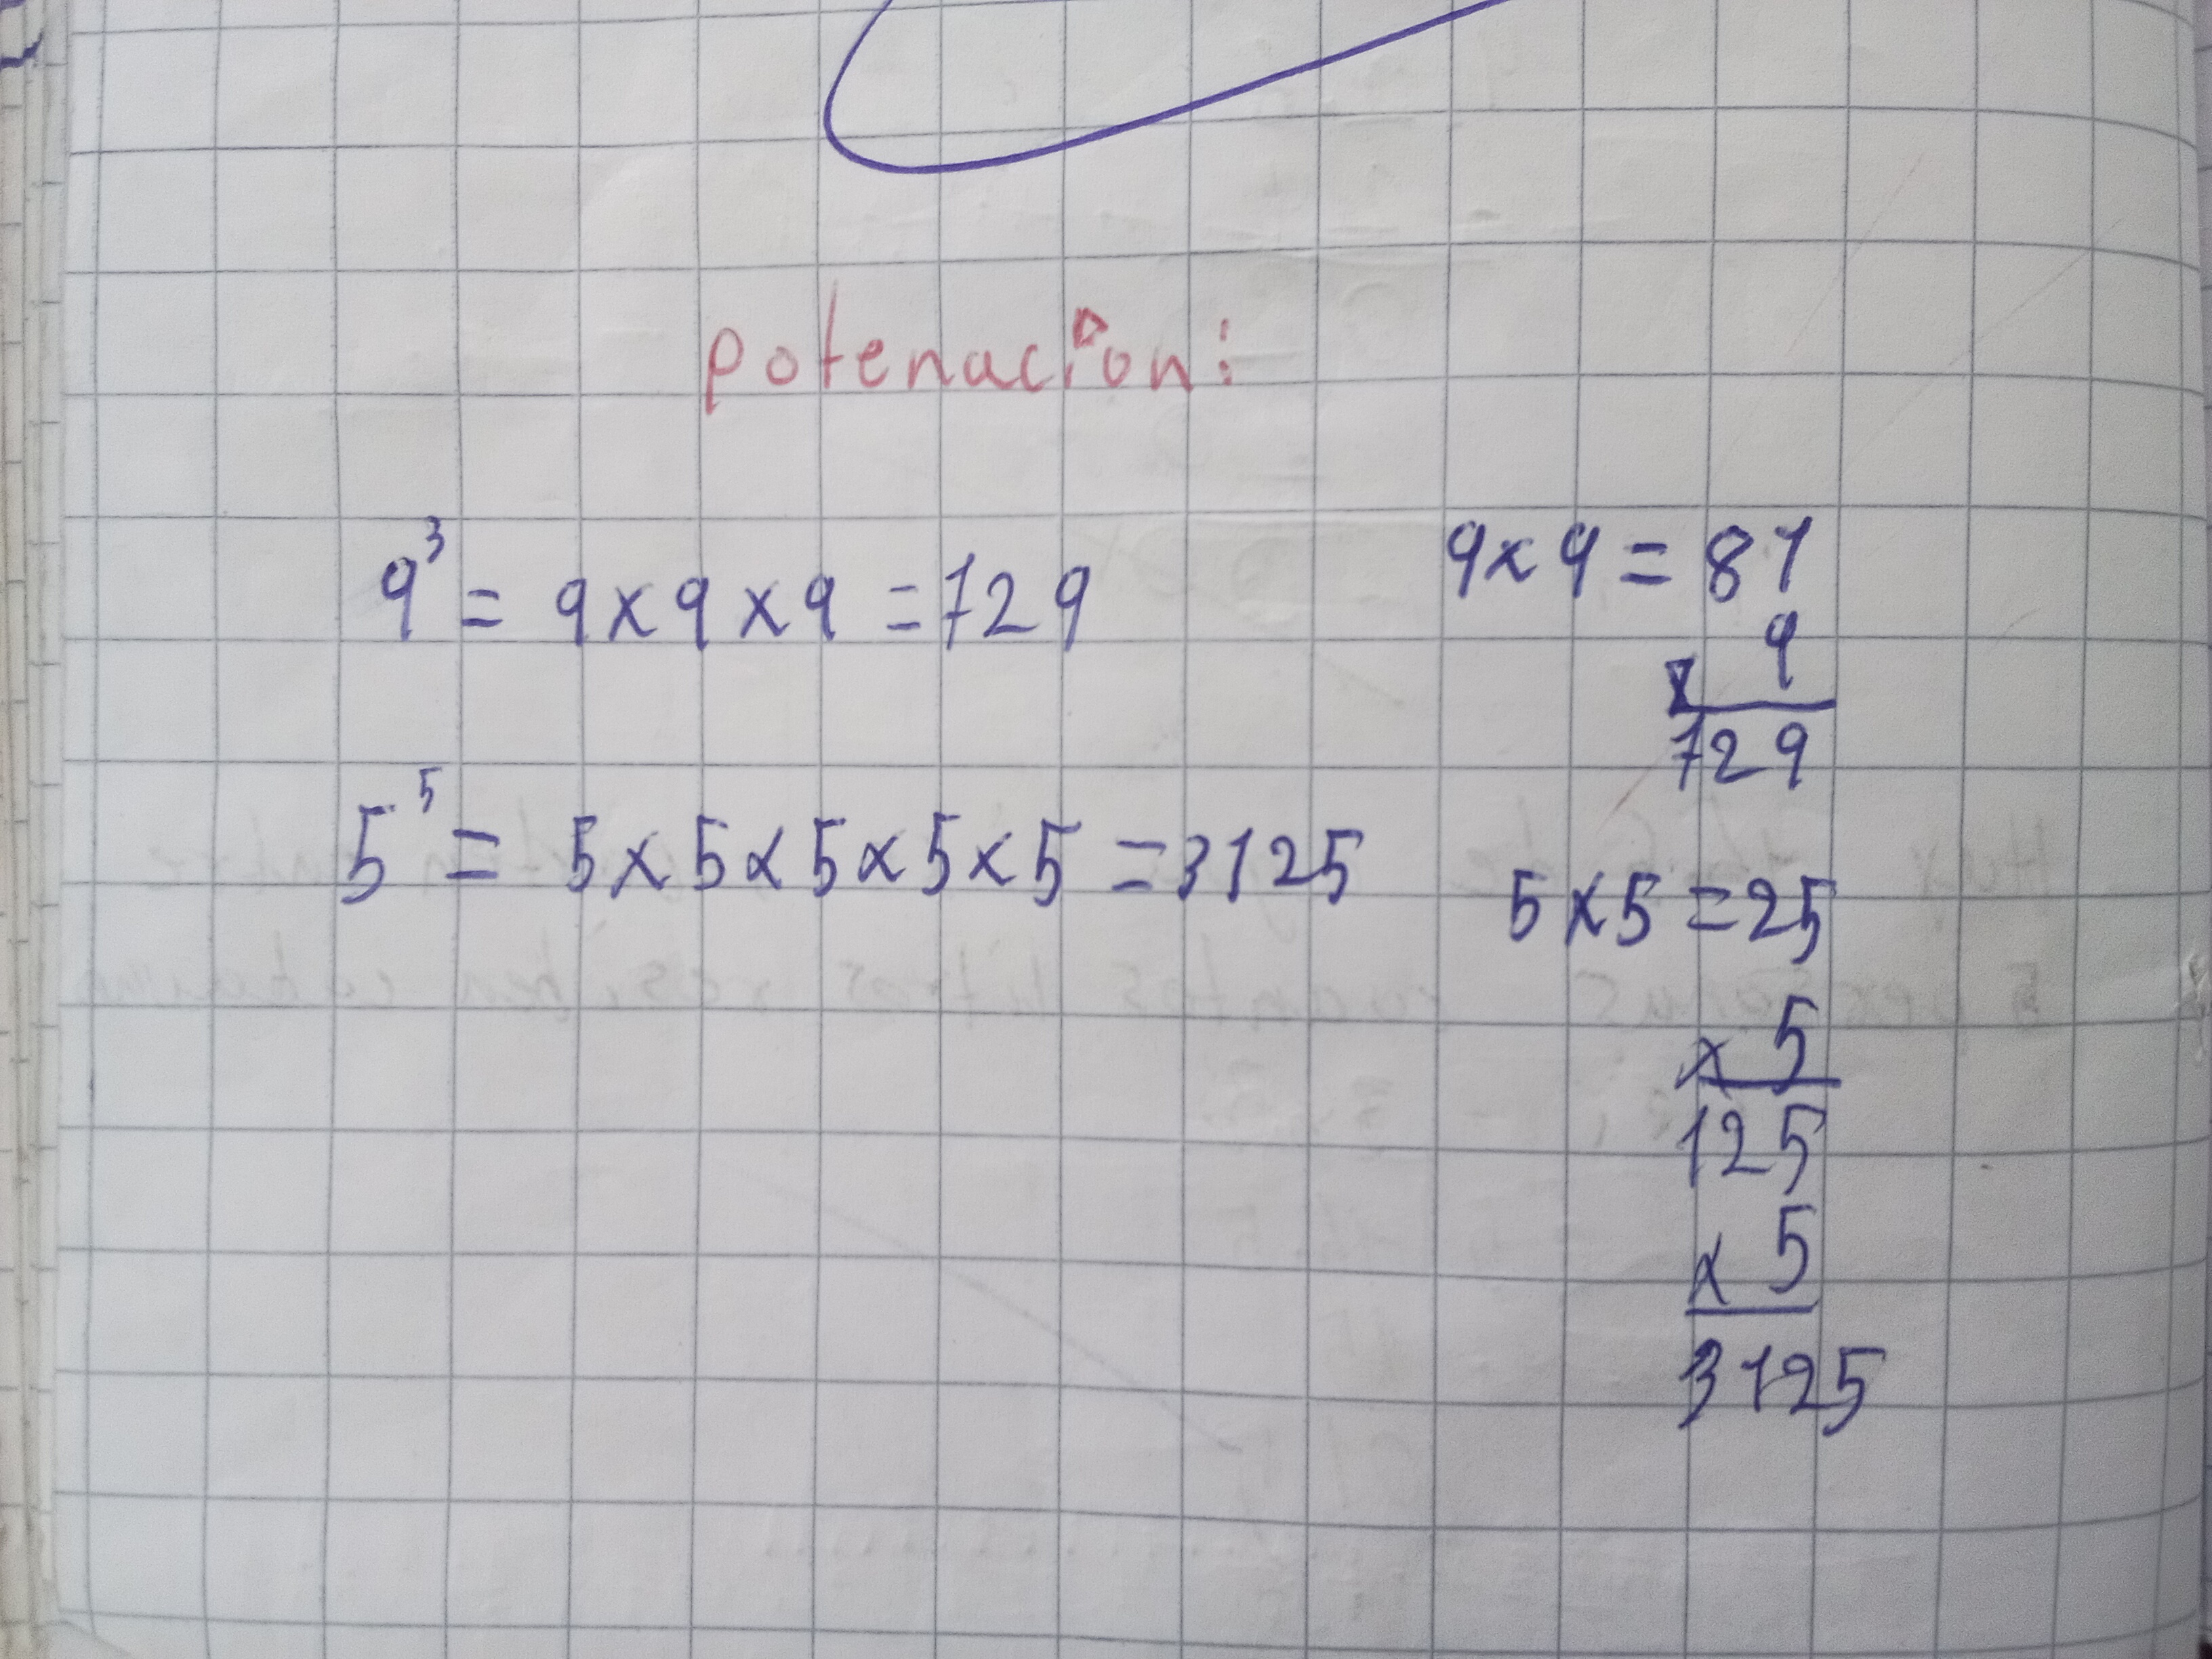 potenacion:
9³ = 9 x 9 x 9 = 729
5⁵ = 5 x 5 x 5 x 5 x 5 = 3125
9 x 9 = 81
x 9
729
5 x 5 = 25
x 5
125
x 5
3125